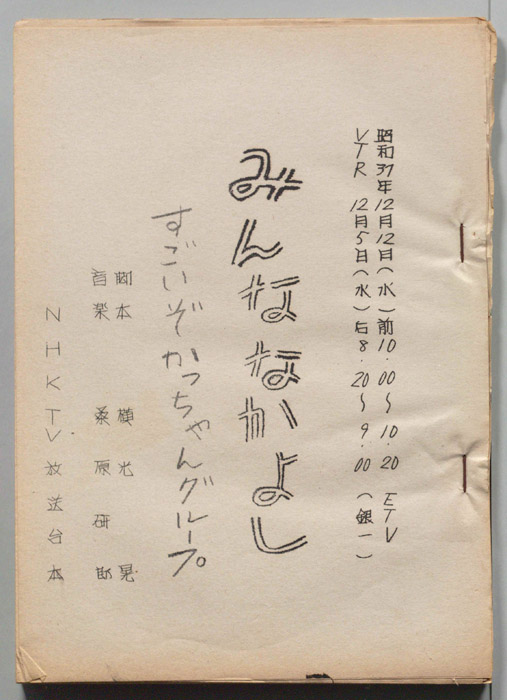 昭和37年12月12日(水)前10.00〜10.20 ETV
VTR 12月5日(水)后8.20〜9.00(銀一)
みんななかよし
すごいぞかっちゃんグループ
脚本 横光 晃
音楽 桑原研郎
NHKTV放送台本